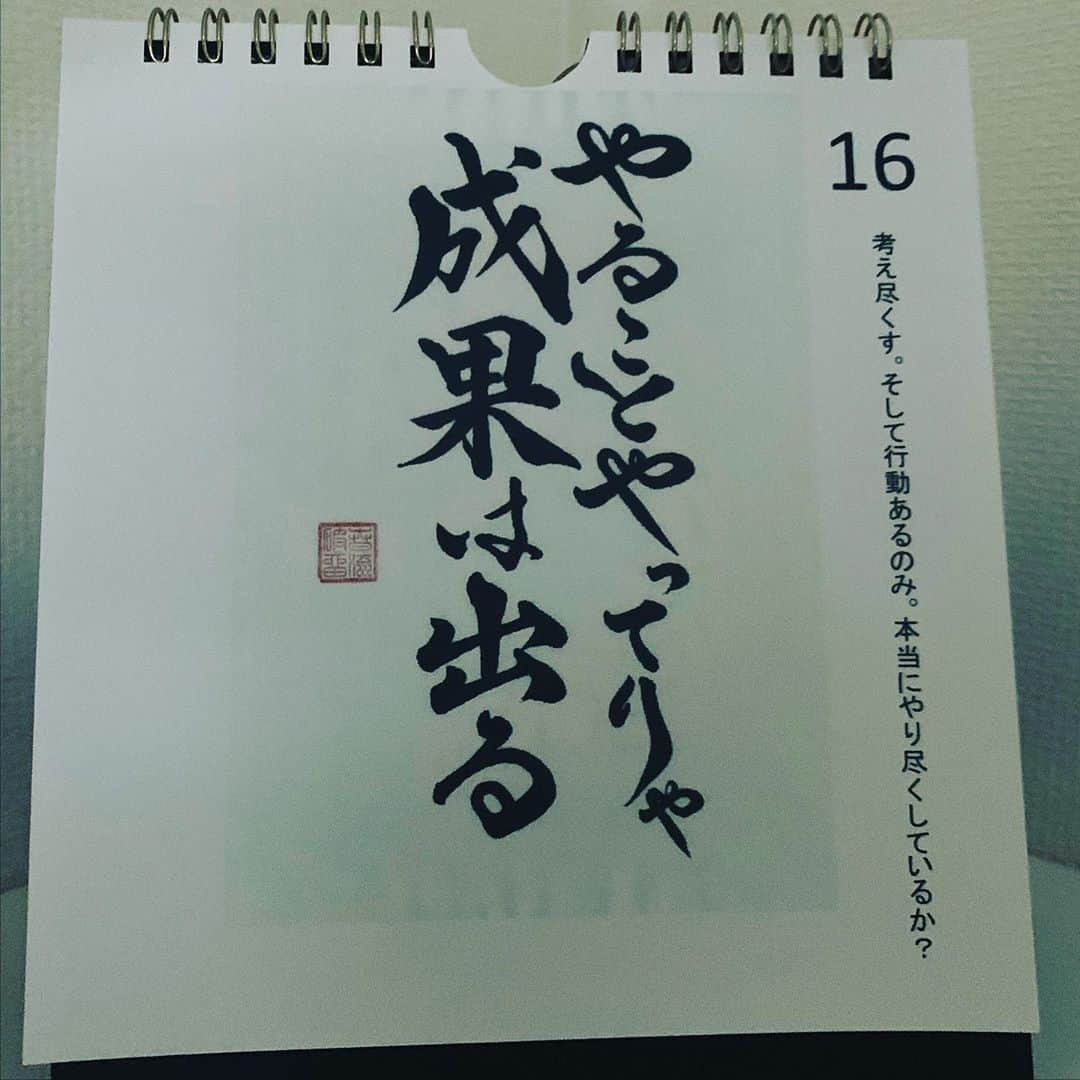 16
考え尽くす。そして行動あるのみ。本当にやり尽くしているか？
やることやってりゃ
成果は出る